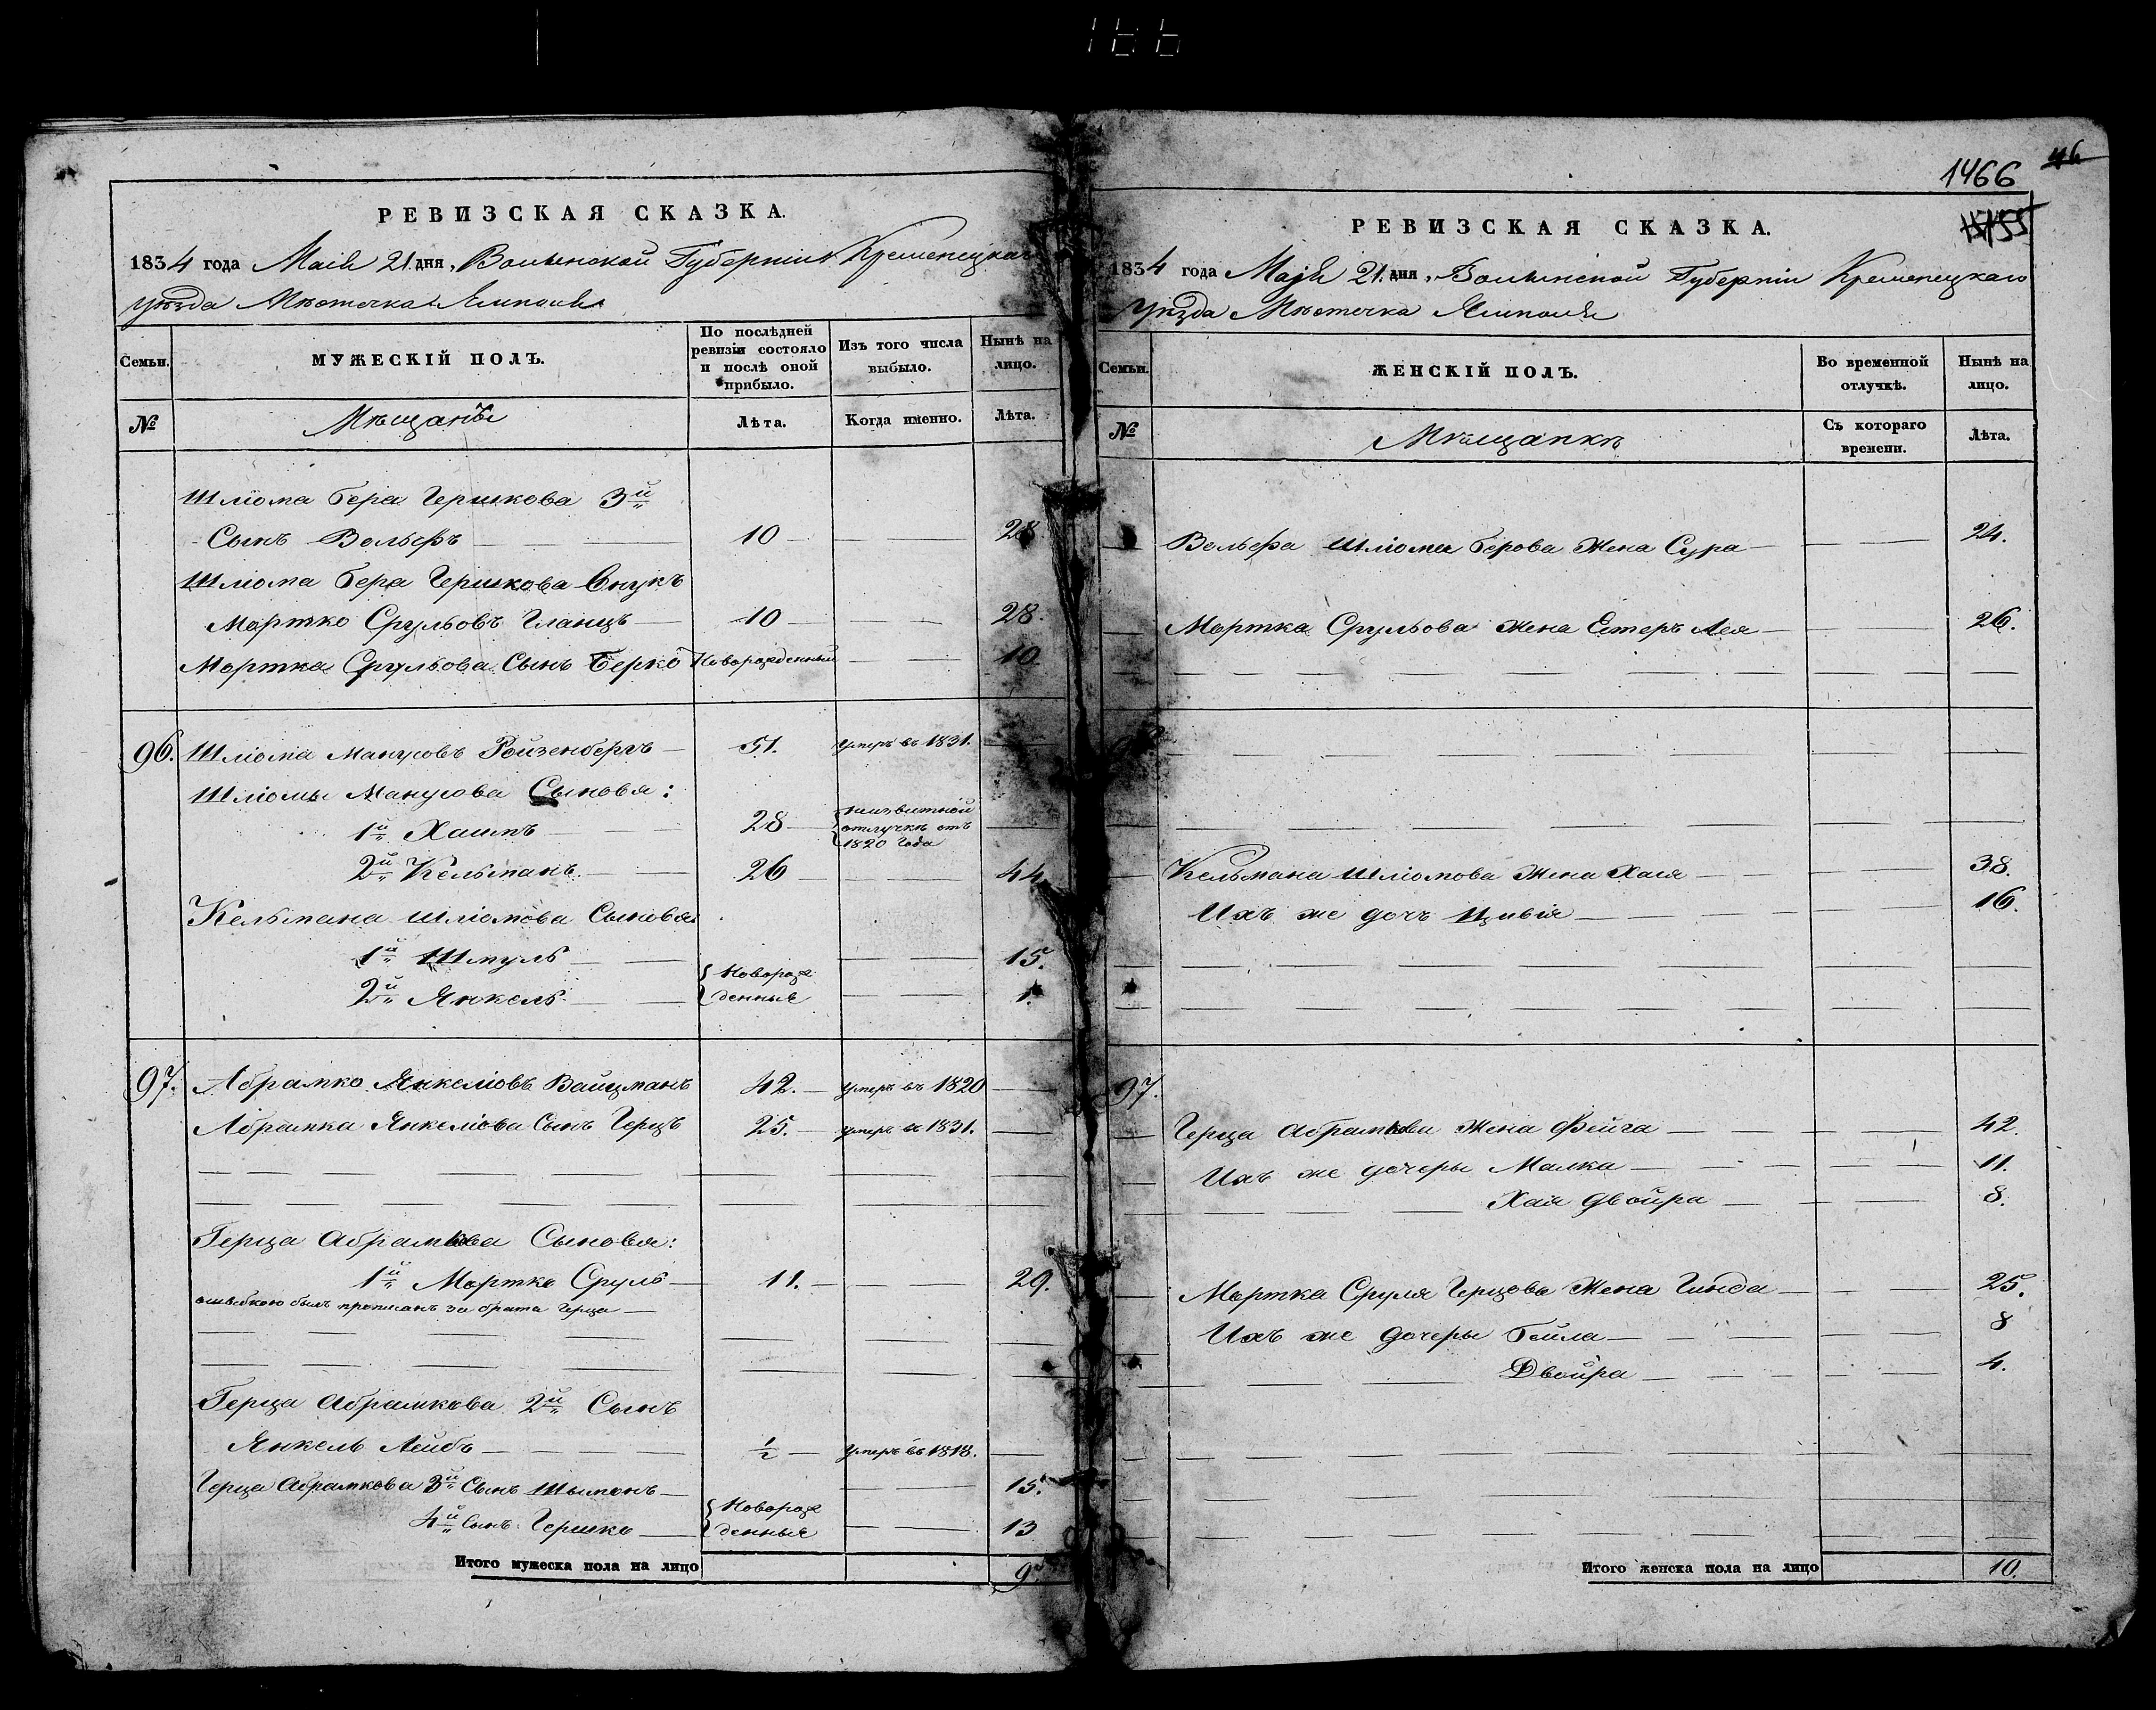 166
РЕВИЗСКАЯ СКАЗКА.
1834 года Маія 21. дня, Волынской Губерніи Кременецкаго
уѣзда Мѣстечка Ямполя
Семьи.
МУЖЕСКІЙ ПОЛЪ.
По послѣдней ревизіи состояло и послѣ оной прибыло.
Изъ того числа выбыло.
Нынѣ на лицо.
№
Мѣщанъ
Лѣта.
Когда именно.
Лѣта.
Шліома Бера Гершкова 3й
Сынъ Вольфъ 10 28
Шліома Бера Гершкова Внукъ
Мортко Срульовъ Гланцъ 10 28.
Мортка Срульова Сынъ Берко Новорожденный 10.
96. Шліома Манусовъ Ройзенбергъ 51. умеръ въ 1831.
Шліомы Манусова Сыновья:
1й Хаимъ 28 отлучкѣ отъ 1820 года
2й Кельманъ 26 44
Кельмана Шліомова Сыновья
1й Шмуль 15.
2й Янкель 1.
{Новорож
{денные
97. Абрамко Янкеліовъ Вайцманъ 42. умеръ въ 1820
Абрамка Янкеліова Сынъ Герцъ 25. умеръ въ 1831.
Герца Абрамкова Сыновья:
1й Мортко Сруль 11. 29.
ошибкою былъ прописанъ за брата Герца
Герца Абрамкова 2й Сынъ
Янкель Лейбъ ½ умеръ въ 1818.
Герца Абрамкова 3й Сынъ Шымонъ 15.
4й Сынъ Гершко 13
{Новорож
{денные
Итого мужеска пола на лицо 9.
46
1466
РЕВИЗСКАЯ СКАЗКА.
1834 года Маія 21. дня, Волынской Губерніи Кременецкаго
Уѣзда Мѣстечка Ямполя
Семьи.
ЖЕНСКІЙ ПОЛЪ.
Во временной отлучкѣ.
Нынѣ на лицо.
№
Мѣщанкъ
Съ котораго времени.
Лѣта.
Вольфа Шліома Берова Жена Сура 24.
Мортка Срульова жена Естеръ Лея 26.
Кельмана Шліомова Жена Хася 38.
Ихъ же дочъ Цивія 16.
97.
Герца Абрамкова Жена Фейга 42.
Ихъ же дочеры Малка 11.
Хая Двойра 8.
Мортка Сруля Герцова Жена Гинда 25.
Ихъ же дочеры Бейла 8
Двойра 4.
Итого женска пола на лицо 10.